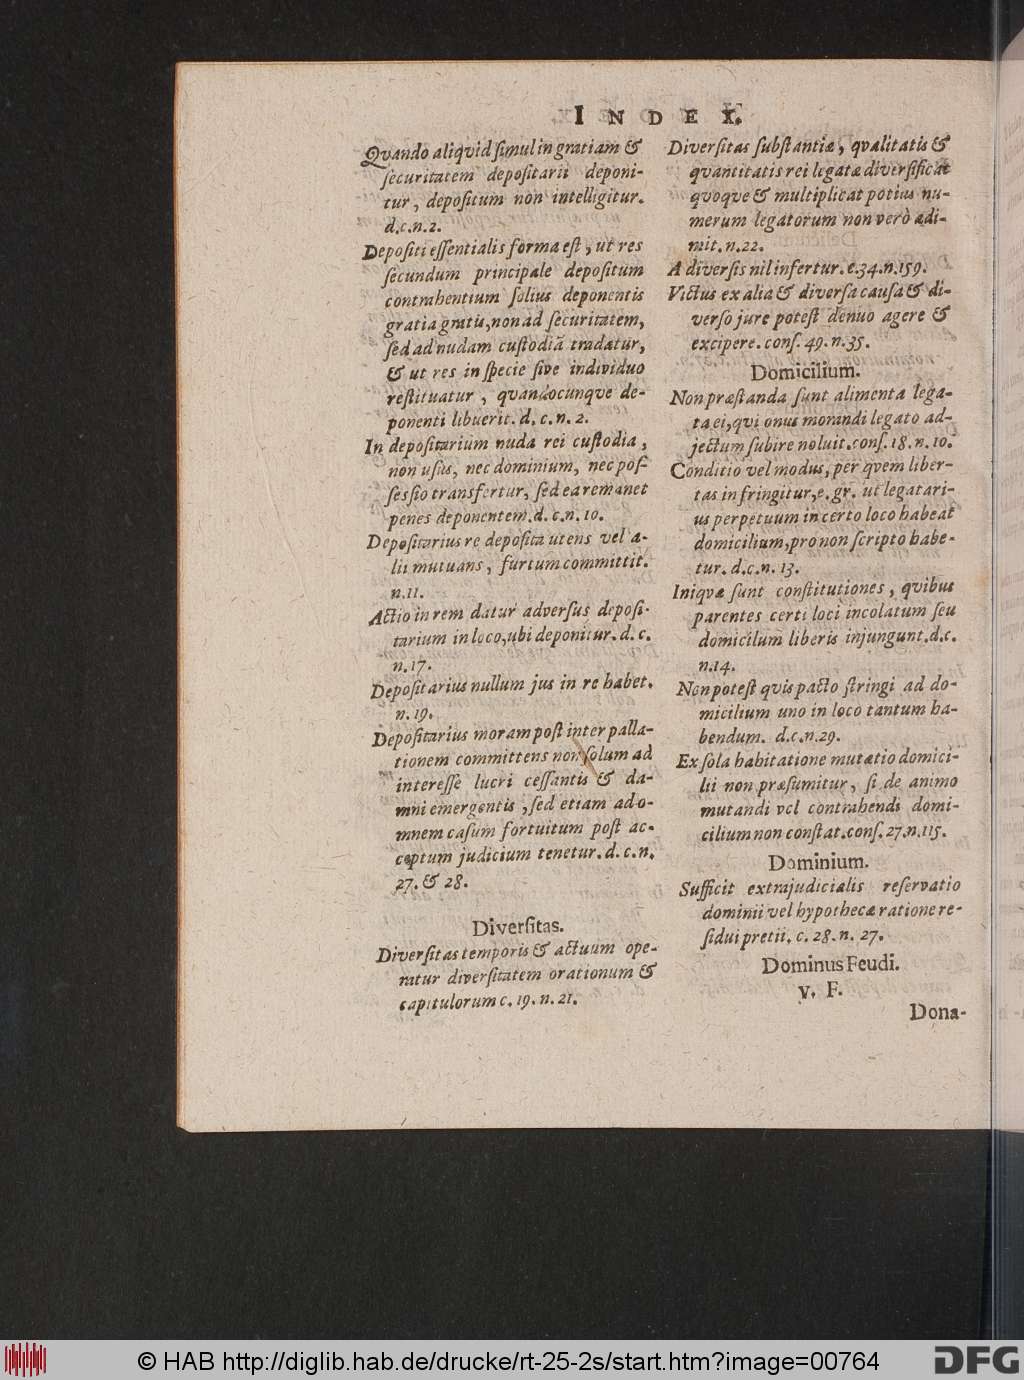 INDEX.
Qvando aliqvid simul in gratiam &
securitatem depositarii deponi-
tur, depositum non intelligitur.
d.c.n.2.
Depositi essentialis forma est, ut res
secundum principale depositum
contrahentium solius deponentis
gratia gratis, non ad securitatem,
sed ad nudam custodiã tradatur,
& ut res in specie sive individuo
restituatur, quandocunque de-
ponenti libuerit. d. c. n. 2.
In depositarium nuda rei custodia,
non usus, nec dominium, nec pos-
sessio transfertur, sed ea remanet
penes deponentem. d. c. n. 10.
Depositarius re deposita utens vel a-
lii mutuans, furtum committit.
n. 11.
Actio in rem datur adversus deposi-
tarium in loco, ubi deponitur. d. c.
n. 17.
Depositarius nullum jus in re habet.
n. 19.
Depositarius moram post interpalla-
tionem committens non solum ad
interesse lucri cessantis & da-
mni emergentis, sed etiam ad o-
mnem casum fortuitum post ac-
ceptum judicium tenetur. d. c. n.
27. & 28.
Diversitas.
Diversitas temporis & actuum ope-
ratur diversitatem orationum &
capitulorum c. 19. n. 21.
Diversitas substantiæ, qvalitatis &
qvantitatis rei legatæ diversificat
quoqve & multiplicat potius nu-
merum legatorum non verò adi-
mit. n. 22.
A diversis nil infertur. c. 34. n. 159.
Victus ex alia & diversa causa & di-
verso jure potest denuo agere &
excipere. cons. 49. n. 35.
Domicilium.
Non præstanda sunt alimenta lega-
ta ei, qui onus morandi legato ad-
jectum subire noluit. cons. 18. n. 10.
Conditio vel modus, per qvem liber-
tas infringitur, e. gr. ut legatari-
us perpetuum in certo loco habeat
domicilium, pro non scripto habe-
tur. d. c. n. 13.
Iniqvæ sunt constitutiones, qvibus
parentes certi loci incolatum seu
domicilum liberis injungunt. d. c.
n. 14.
Non potest qvis pacto stringi ad do-
micilium uno in loco tantum ha-
bendum. d. c. n. 29.
Ex sola habitatione mutatio domici-
lii non præsumitur, si de animo
mutandi vel contrahendi domi-
cilium non constat. cons. 27. n. 115.
Dominium.
Sufficit extrajudicialis reservatio
dominii vel hypothecæ ratione re-
sidui pretii. c. 28. n. 27.
Dominus Feudi.
v. F.
Dona-
© HAB http://diglib.hab.de/drucke/rt-25-2s/start.htm?image=00764
DFG